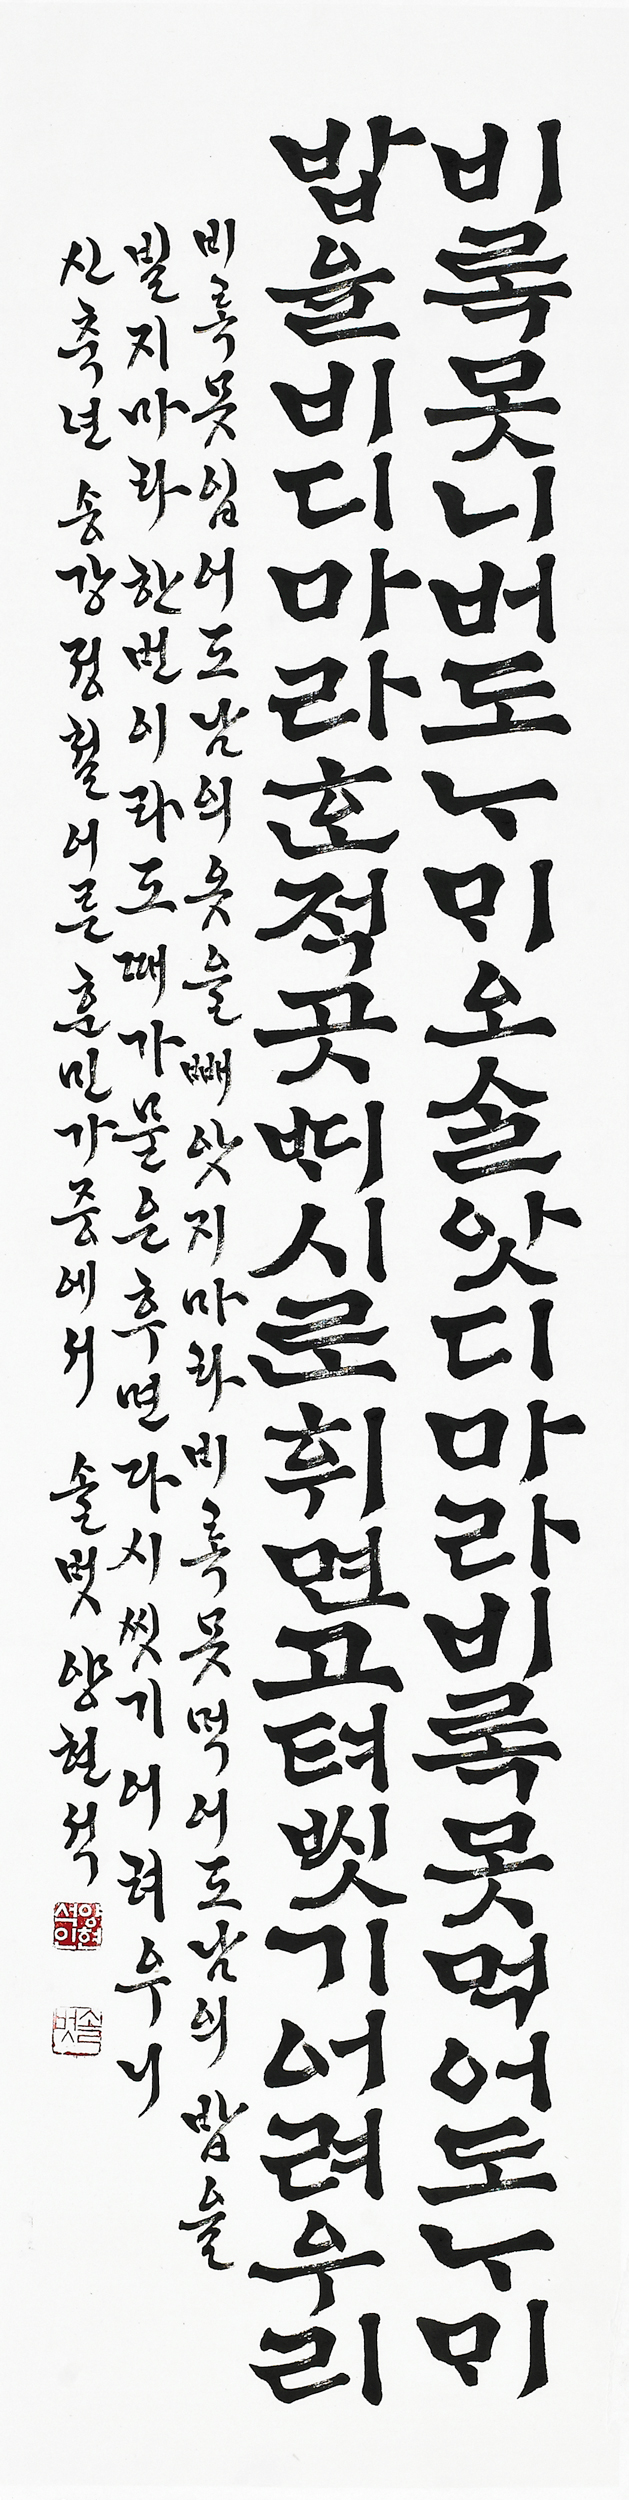 비록못니버도ᄂᆞ미오ᄉᆞᆯ앗디마라비록못먹어도ᄂᆞ미
밥을비디마라ᄒᆞᆫ적곳ᄠᆡ시론휘면고텨ᄡᅵᆺ기어려우리
비록못입어도남의옷을빼앗지마라비록못먹어도남의밥을
빌지마라한번이라도때가묻은후면다시씻기어려우니
신축년송강정철어른훈민가중에서 솔벗양현석
양현석인
솔벗